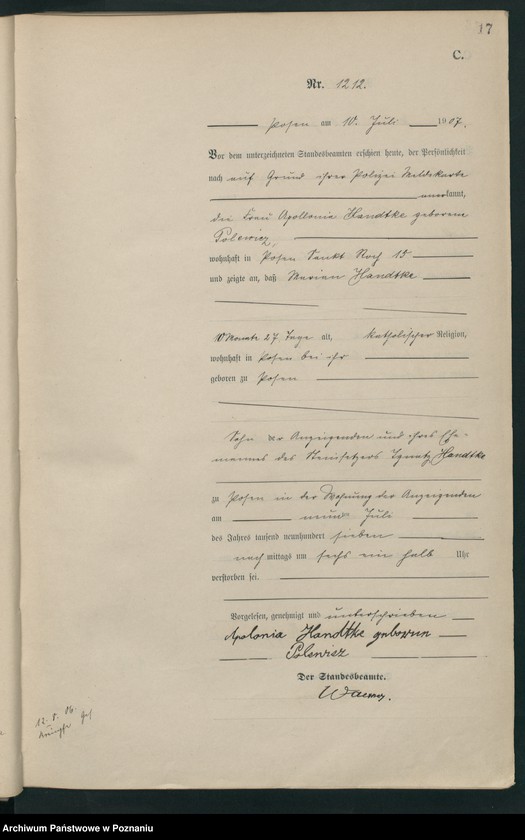 17
C.
Nr. 1212.
Posen am 10. Juli 1907.
Vor dem unterzeichneten Standesbeamten erschien heute, der Persönlichkeit
nach auf Grund ihrer Polizei Meldekarte
anerkannt,
die Frau Apollonia Handtke geborene
Polewicz,
wohnhaft in Posen Sankt Roch 15
und zeigte an, daß Marian Handtke
10 Monate 27 Tage alt, katholischer Religion,
wohnhaft in Posen bei ihr
geboren zu Posen
Sohn der Anzeigenden und ihres Ehe-
mannes des Steinsetzers Ignatz Handtke
zu Posen in der Wohnung der Anzeigenden
am neunten Juli
des Jahres tausend neunhundert sieben
nach mittags um sechs ein halb Uhr
verstorben sei.
Vorgelesen, genehmigt und unterschrieben
Apolonia Handtke geborene
Polewicz
Der Standesbeamte.
12. 8. 06.
Archiwum Państwowe w Poznaniu